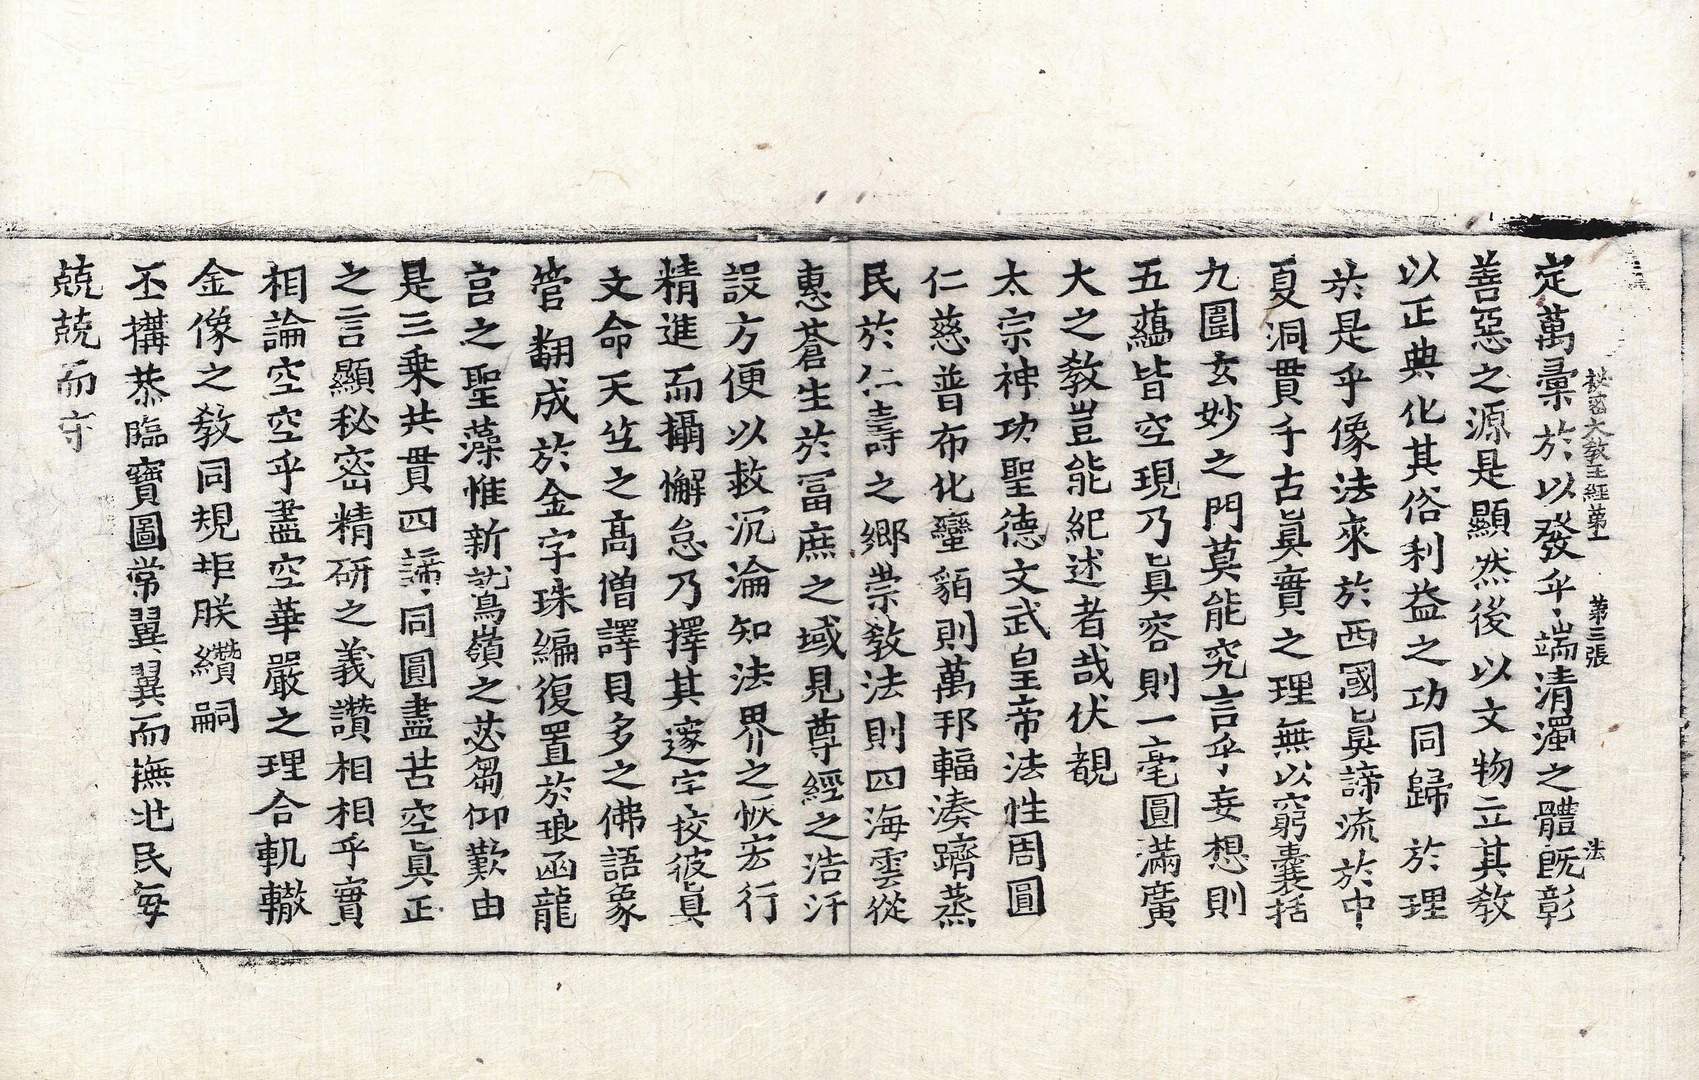 定萬彙於以發乎端清濁之體旣彰
秘密大教王經第一　第三張　法
善惡之源是顯然後以文物立其教
以正典化其俗利益之功同歸於理
於是乎像法來於西國眞諦流於中
夏洞貫千古眞實之理無以窮囊括
九圍玄妙之門莫能究言乎妄想則
五蘊皆空現乃眞容則一毫圓滿廣
大之教豈能紀述者哉伏覩
太宗神功聖德文武皇帝法性周圓
仁慈普布化蠻貊則萬邦輻湊躋蒸
民於仁壽之鄉崇教法則四海雲從
惠蒼生於富庶之域見尊經之浩汗
設方便以救沉淪知法界之恢宏行
精進而攝懈怠乃擇其邃宇校彼眞
文命天竺之高僧譯貝多之佛語象
管翻成於金字珠編復置於琅函龍
宮之聖藻惟新鷲嶺之苾蒭仰歎由
是三乘共貫四諦同圓盡苦空眞正
之言顯秘密精研之義讚相相乎實
相論空空乎盡空華嚴之理合軌轍
金像之教同規矩朕纘嗣
丕搆恭臨寶圖常翼翼而撫兆民每
兢兢而守